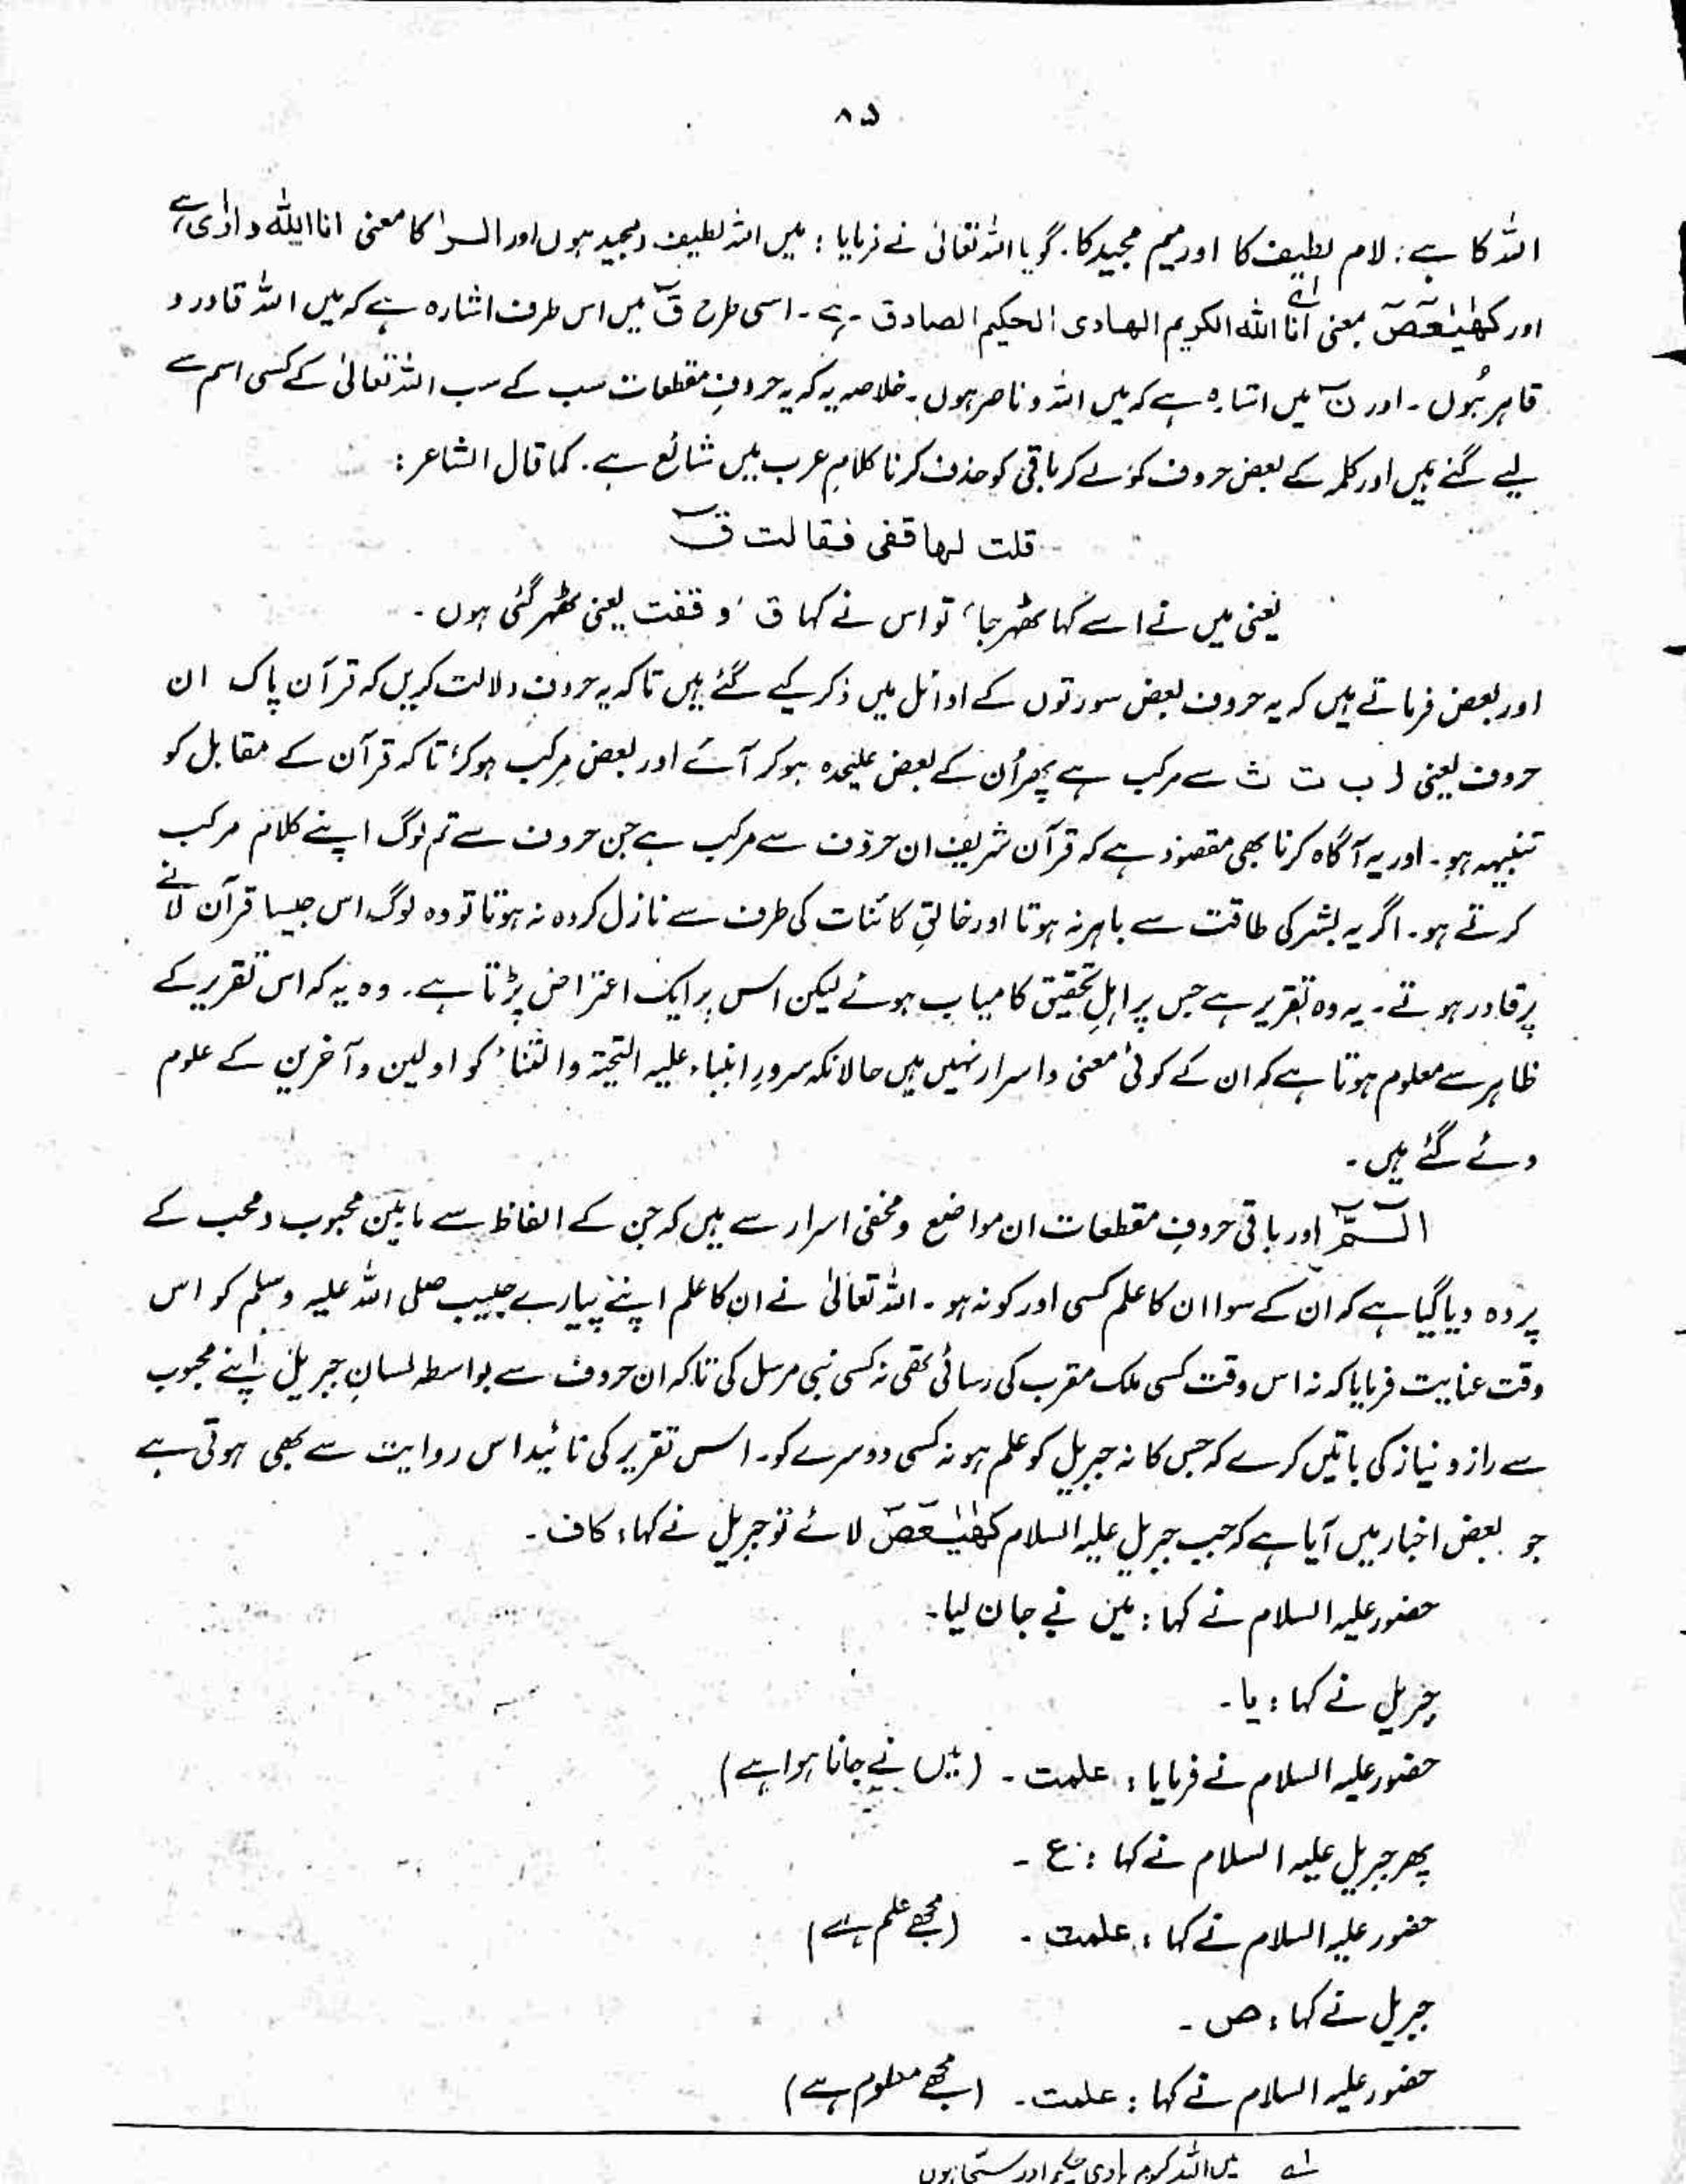 ۸۵
اللہ کا ہے؛ لام لطیف کا اور میم مجید کا۔ گویا اللہ تعالیٰ نے فرمایا : میں اللہ لطیف و مجید ہوں اور الٓرٰ کا معنی انا اللہ و ارٰی ہے
اور کھٰیٰعٓصٓ بمعنی انا اللہ الکریم الھادی الحکیم الصادق ہے۔ اسی طرح قٓ میں اس طرف اشارہ ہے کہ میں اللہ قادر و
قاہر ہُوں۔ اور نٓ میں اشارہ ہے کہ میں اللہ و ناصر ہوں۔ خلاصہ یہ کہ یہ حروفِ مقطعات سب کے سب اللہ تعالیٰ کے کسی اسم سے
لیے گئے ہیں اور کلمہ کے بعض حروف کو لے کر باقی کو حذف کرنا کلامِ عرب میں شائع ہے۔ کما قال الشاعر :
قلت لہا قفی فقالت قٓ
یعنی میں نے اسے کہا ٹھہر جا، تو اس نے کہا ق، و قفت یعنی ٹھہر گئی ہوں۔
اور بعض فرماتے ہیں کہ یہ حروف بعض سورتوں کے اوائل میں ذکر کیے گئے ہیں تاکہ یہ حروف دلالت کریں کہ قرآن پاک ان
حروف یعنی ا ب ت ث سے مرکب ہے پھر اُن کے بعض علیحدہ ہو کر آئے اور بعض مرکب ہو کر تاکہ قرآن کے مقابل کو
تنبیہہ ہو۔ اور یہ آگاہ کرنا بھی مقصود ہے کہ قرآن شریف ان حروف سے مرکب ہے جن حروف سے تم لوگ اپنے کلام مرکب
کرتے ہو۔ اگر یہ بشر کی طاقت سے باہر نہ ہوتا اور خالقِ کائنات کی طرف سے نازل کردہ نہ ہوتا تو وہ لوگ اس جیسا قرآن لانے
پر قادر ہوتے۔ یہ وہ تقریر ہے جس پر اہلِ تحقیق کامیاب ہوئے لیکن اس پر ایک اعتراض پڑتا ہے۔ وہ یہ کہ اس تقریر کے
ظاہر سے معلوم ہوتا ہے کہ ان کے کوئی معنی و اسرار نہیں ہیں حالانکہ سرورِ انبیاء علیہ التحیۃ والثناء کو اولین و آخرین کے علوم
دئے گئے ہیں۔
الٓمّٓ اور باقی حروفِ مقطعات ان مواضع و مخفی اسرار سے ہیں کہ جن کے الفاظ سے مابین محبوب و محب کے
پردہ دیا گیا ہے کہ ان کے سوا ان کا علم کسی اور کو نہ ہو۔ اللہ تعالیٰ نے ان کا علم اپنے پیارے حبیب صلی اللہ علیہ وسلم کو اس
وقت عنایت فرمایا کہ نہ اس وقت کسی ملک مقرب کی رسائی تھی نہ کسی نبی مرسل کی تاکہ ان حروف سے بواسطہ لسانِ جبریل اپنے محبوب
سے راز و نیاز کی باتیں کرے کہ جس کا نہ جبریل کو علم ہو نہ کسی دوسرے کو۔ اس تقریر کی تائید اس روایت سے بھی ہوتی ہے
جو بعض اخبار میں آیا ہے کہ جب جبریل علیہ السلام کھٰیٰعٓصٓ لائے تو جبریل نے کہا: کاف۔
حضور علیہ السلام نے کہا : میں نے جان لیا۔
جبریل نے کہا : یا۔
حضور علیہ السلام نے فرمایا : علمت۔ (میں نے جانا ہوا ہے)
پھر جبریل علیہ السلام نے کہا : ع۔
حضور علیہ السلام نے کہا : علمت۔ (مجھے علم ہے)
جبریل نے کہا : ص۔
حضور علیہ السلام نے کہا : علمت۔ (مجھے معلوم ہے)
لے میں اللہ کریم ہادی حکیم اور سچا ہوں